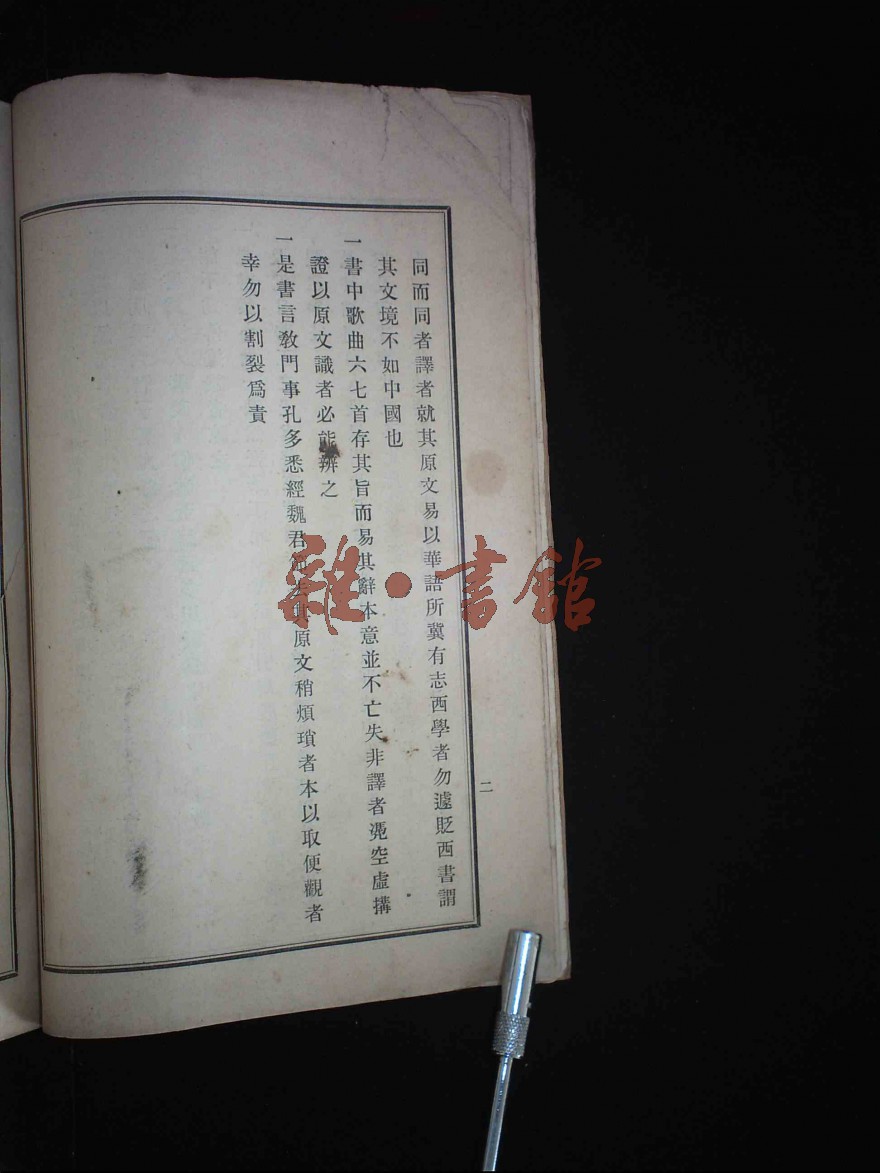 同而同者譯者就其原文易以華語所冀有志西學者勿遽貶西書謂
其文境不如中國也
一書中歌曲六七首存其旨而易其辭本意並不亡失非譯者凴空虛搆
證以原文識者必能辨之
一是書言敎門事孔多悉經魏君節去其原文稍煩瑣者本以取便觀者
幸勿以割裂爲責
二
雜·書館